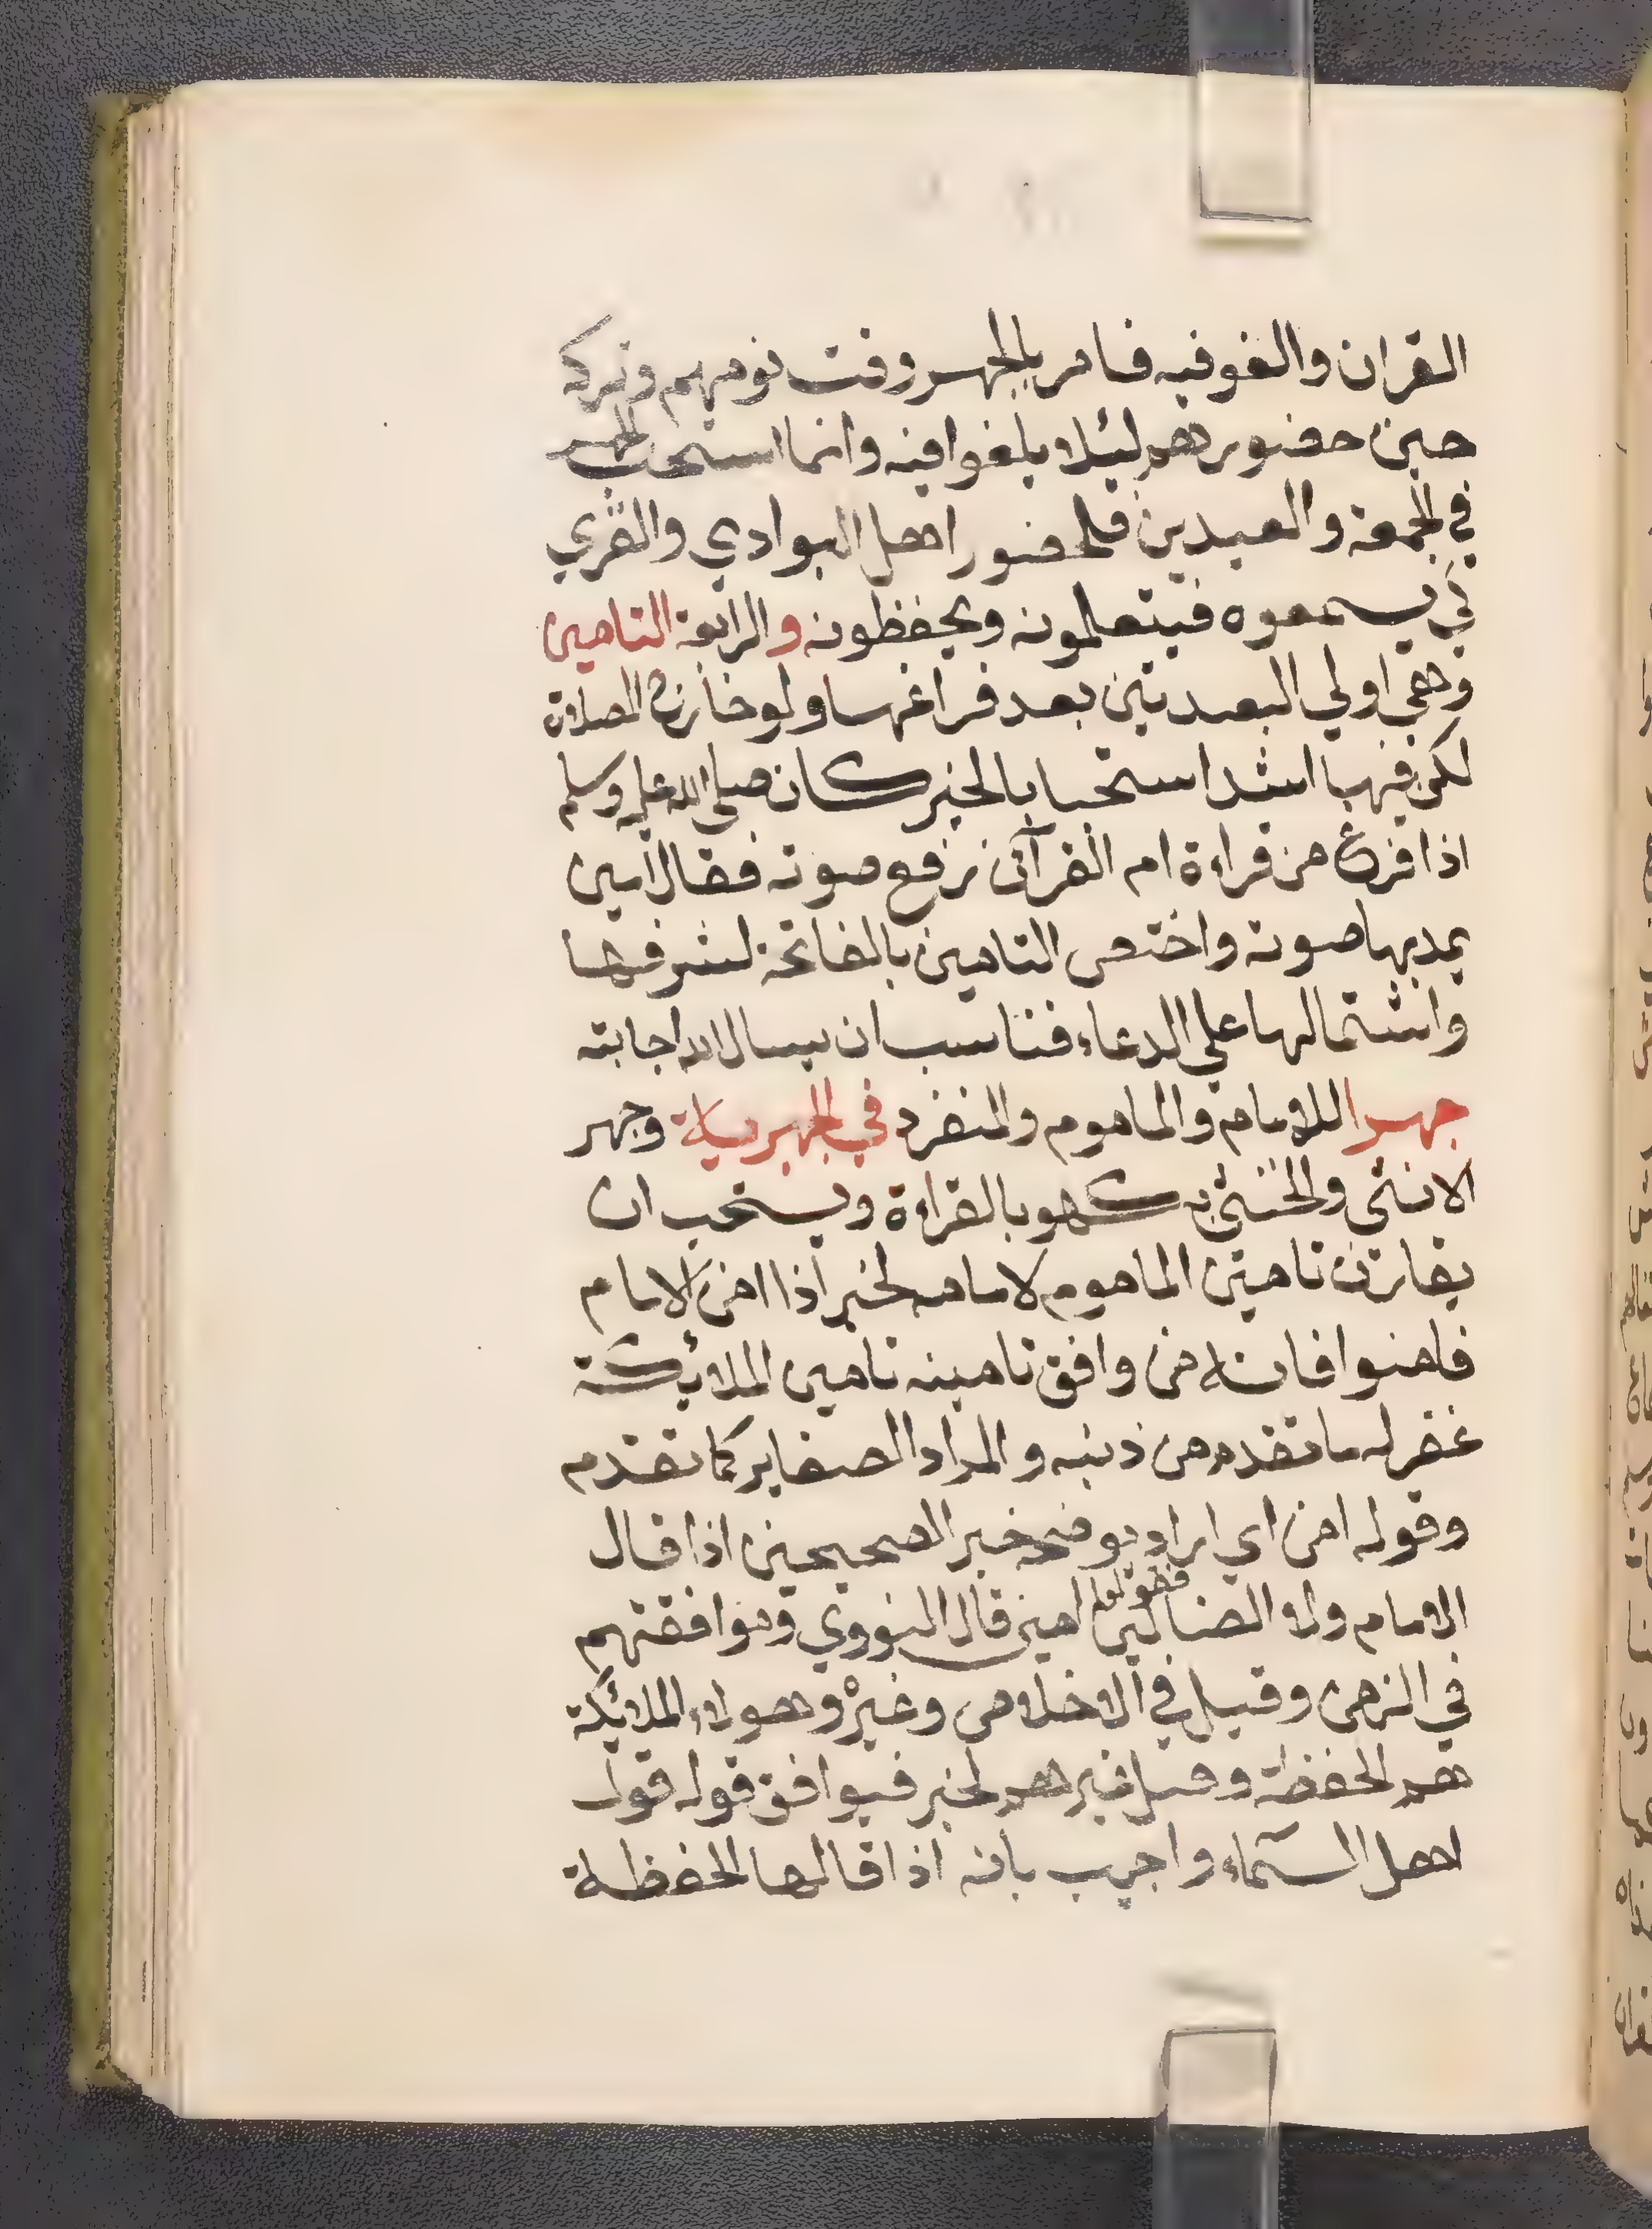 القران والغوفيه فامر بالجهر وقت نومهم وتركه
حين حضورهم ليئلا يلغوا فيه وانما استحب الجهر
في الجمعة والعيدين فلحضور اهل البوادي والقري
كي يسمعوه فيتعلمونه ويحفظونه والرابعة التامين
وهي اولي البعديتين بعد فراغها ولو خارج الصلاة
لكن فيها اشد استحبابا لخبر كان صلى الله عليه وسلم
اذا فرغ من قراءة ام القرآن رفع صوته فقال آمين
يمد بها صوته واختص التامين بالفاتحة لشرفها
واشتمالها على الدعاء فناسب ان يسال الله اجابته
جهرا للامام والماموم والمنفرد في الجهرية وجهر
الانثى والخنثى به كهو بالقراءة ويستحب ان
يقارن تامين الماموم لامامه لخبر اذا امن الامام
فامنوا فانه من وافق تامينه تامين الملائكة
غفر له ما تقدم من ذنبه والمراد الصغاير كما تقدم
وقوله امن اي اراد يوضحه خبر الصحيحين اذا قال
الامام ولا الضالين فقولوا امين قال النووي وموافقتهم
في الزمن وقيل في الاخلاص وغيره وهولاء الملائكة
هم الحفظة وقيل غيرهم لخبر فيوافق قوله قول
اهل السماء واجيب بانه اذا قالها الحفظة